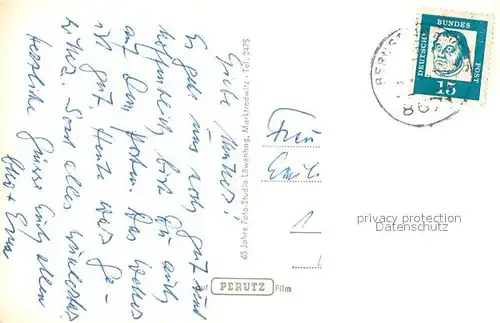 Liebe Mutter!
Es geht uns noch gut und
hoffentlich bist Du auch
auf dem Posten. Das Wetter
ist gut. Heute war Ge-
witter. Sonst alles
herzliche Grüsse Euch allen
+ Erna
65 Jahre Foto-Studio Löwenhag, Marktredwitz · Tel. 2475
auf PERUTZ Film
Frau
1
DEUTSCHE
BUNDES
POST
15
privacy protection
www.delcampe.net